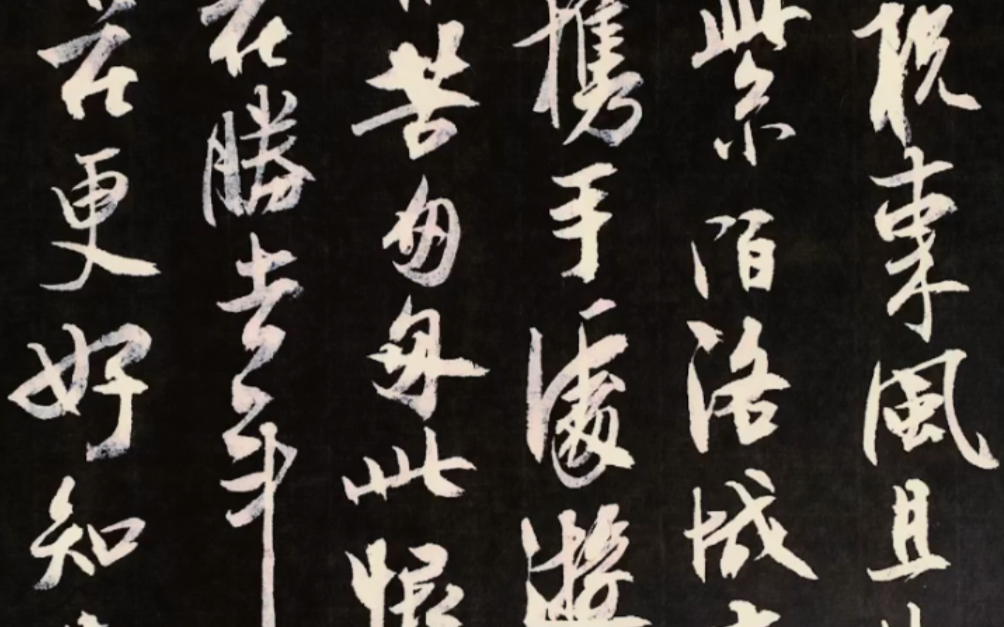 祝東風且
紫陌洛城
携手處遊
苦匆匆此恨
花勝去年
花更好知